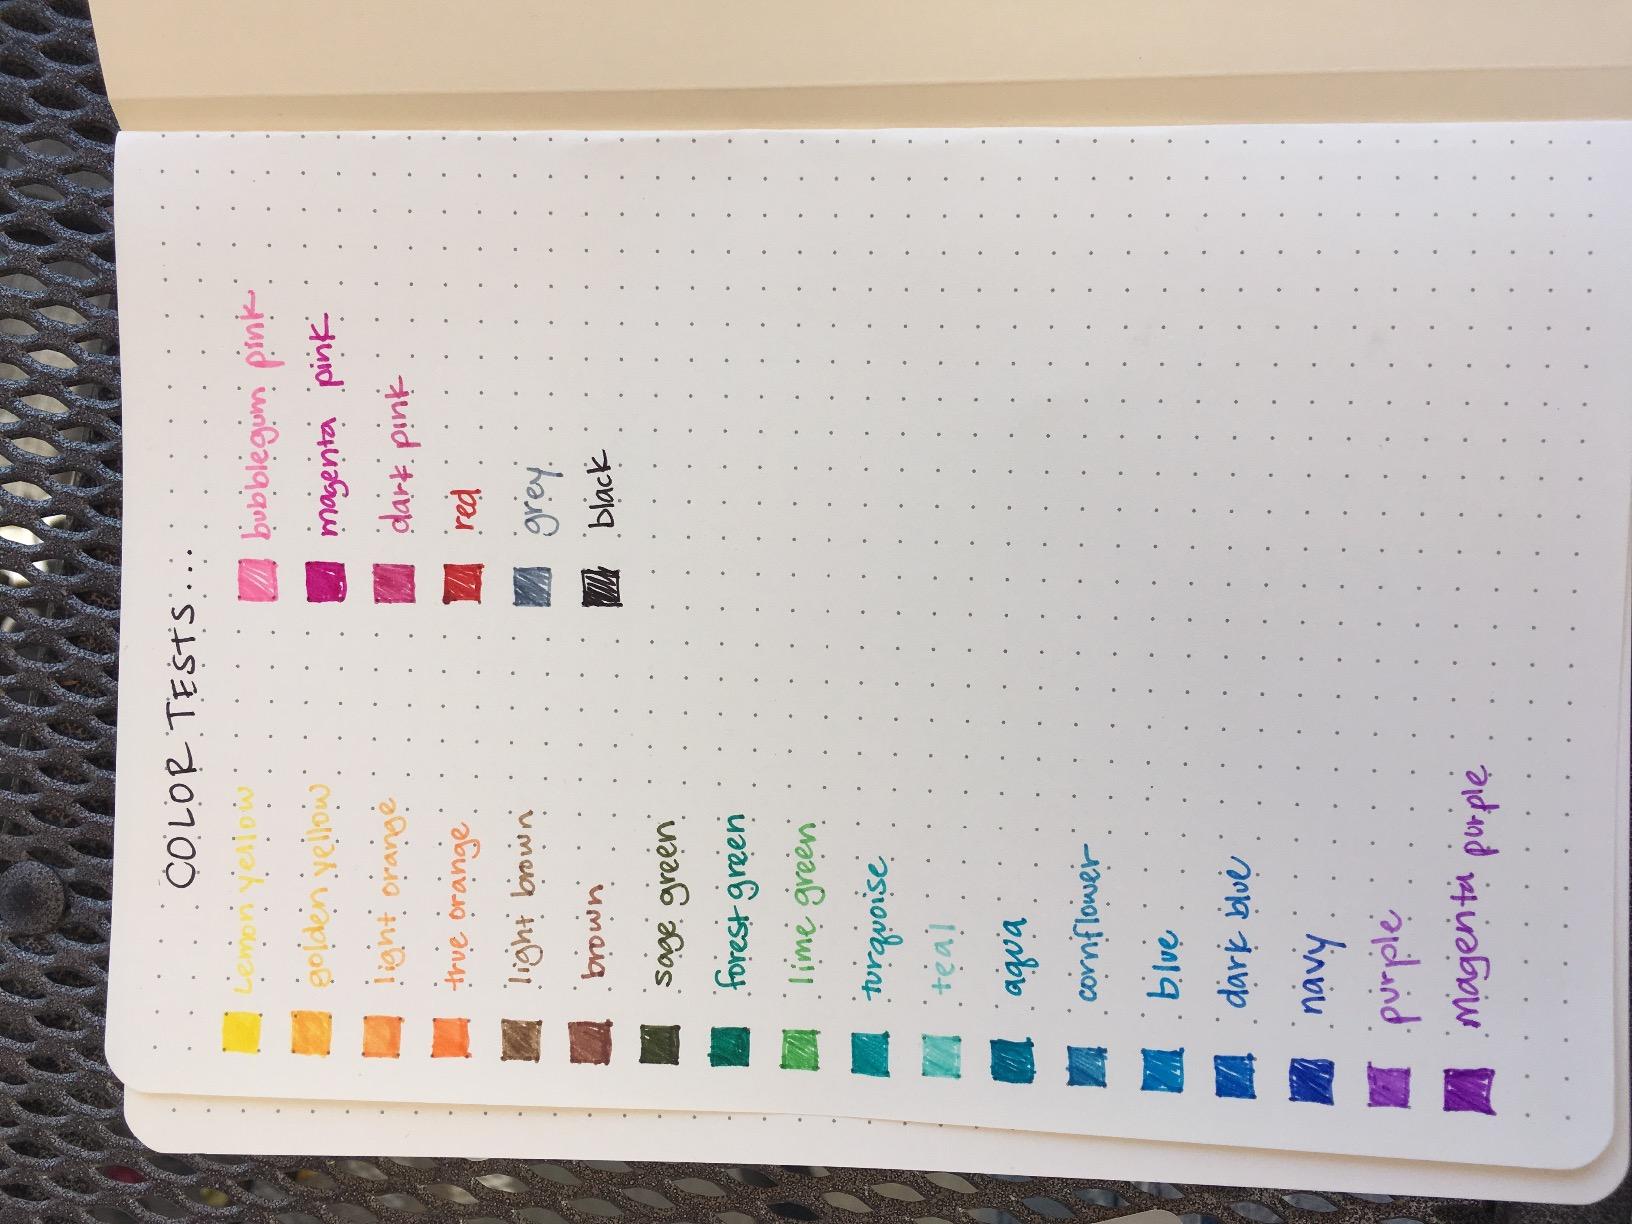 COLOR TESTS...
Lemon yellow
golden yellow
light orange
true orange
light brown
brown
sage green
forest green
lime green
turquoise
teal
aqua
cornflower
blue
dark blue
navy
purple
magenta purple
bubblegum pink
magenta pink
dark pink
red
grey
black